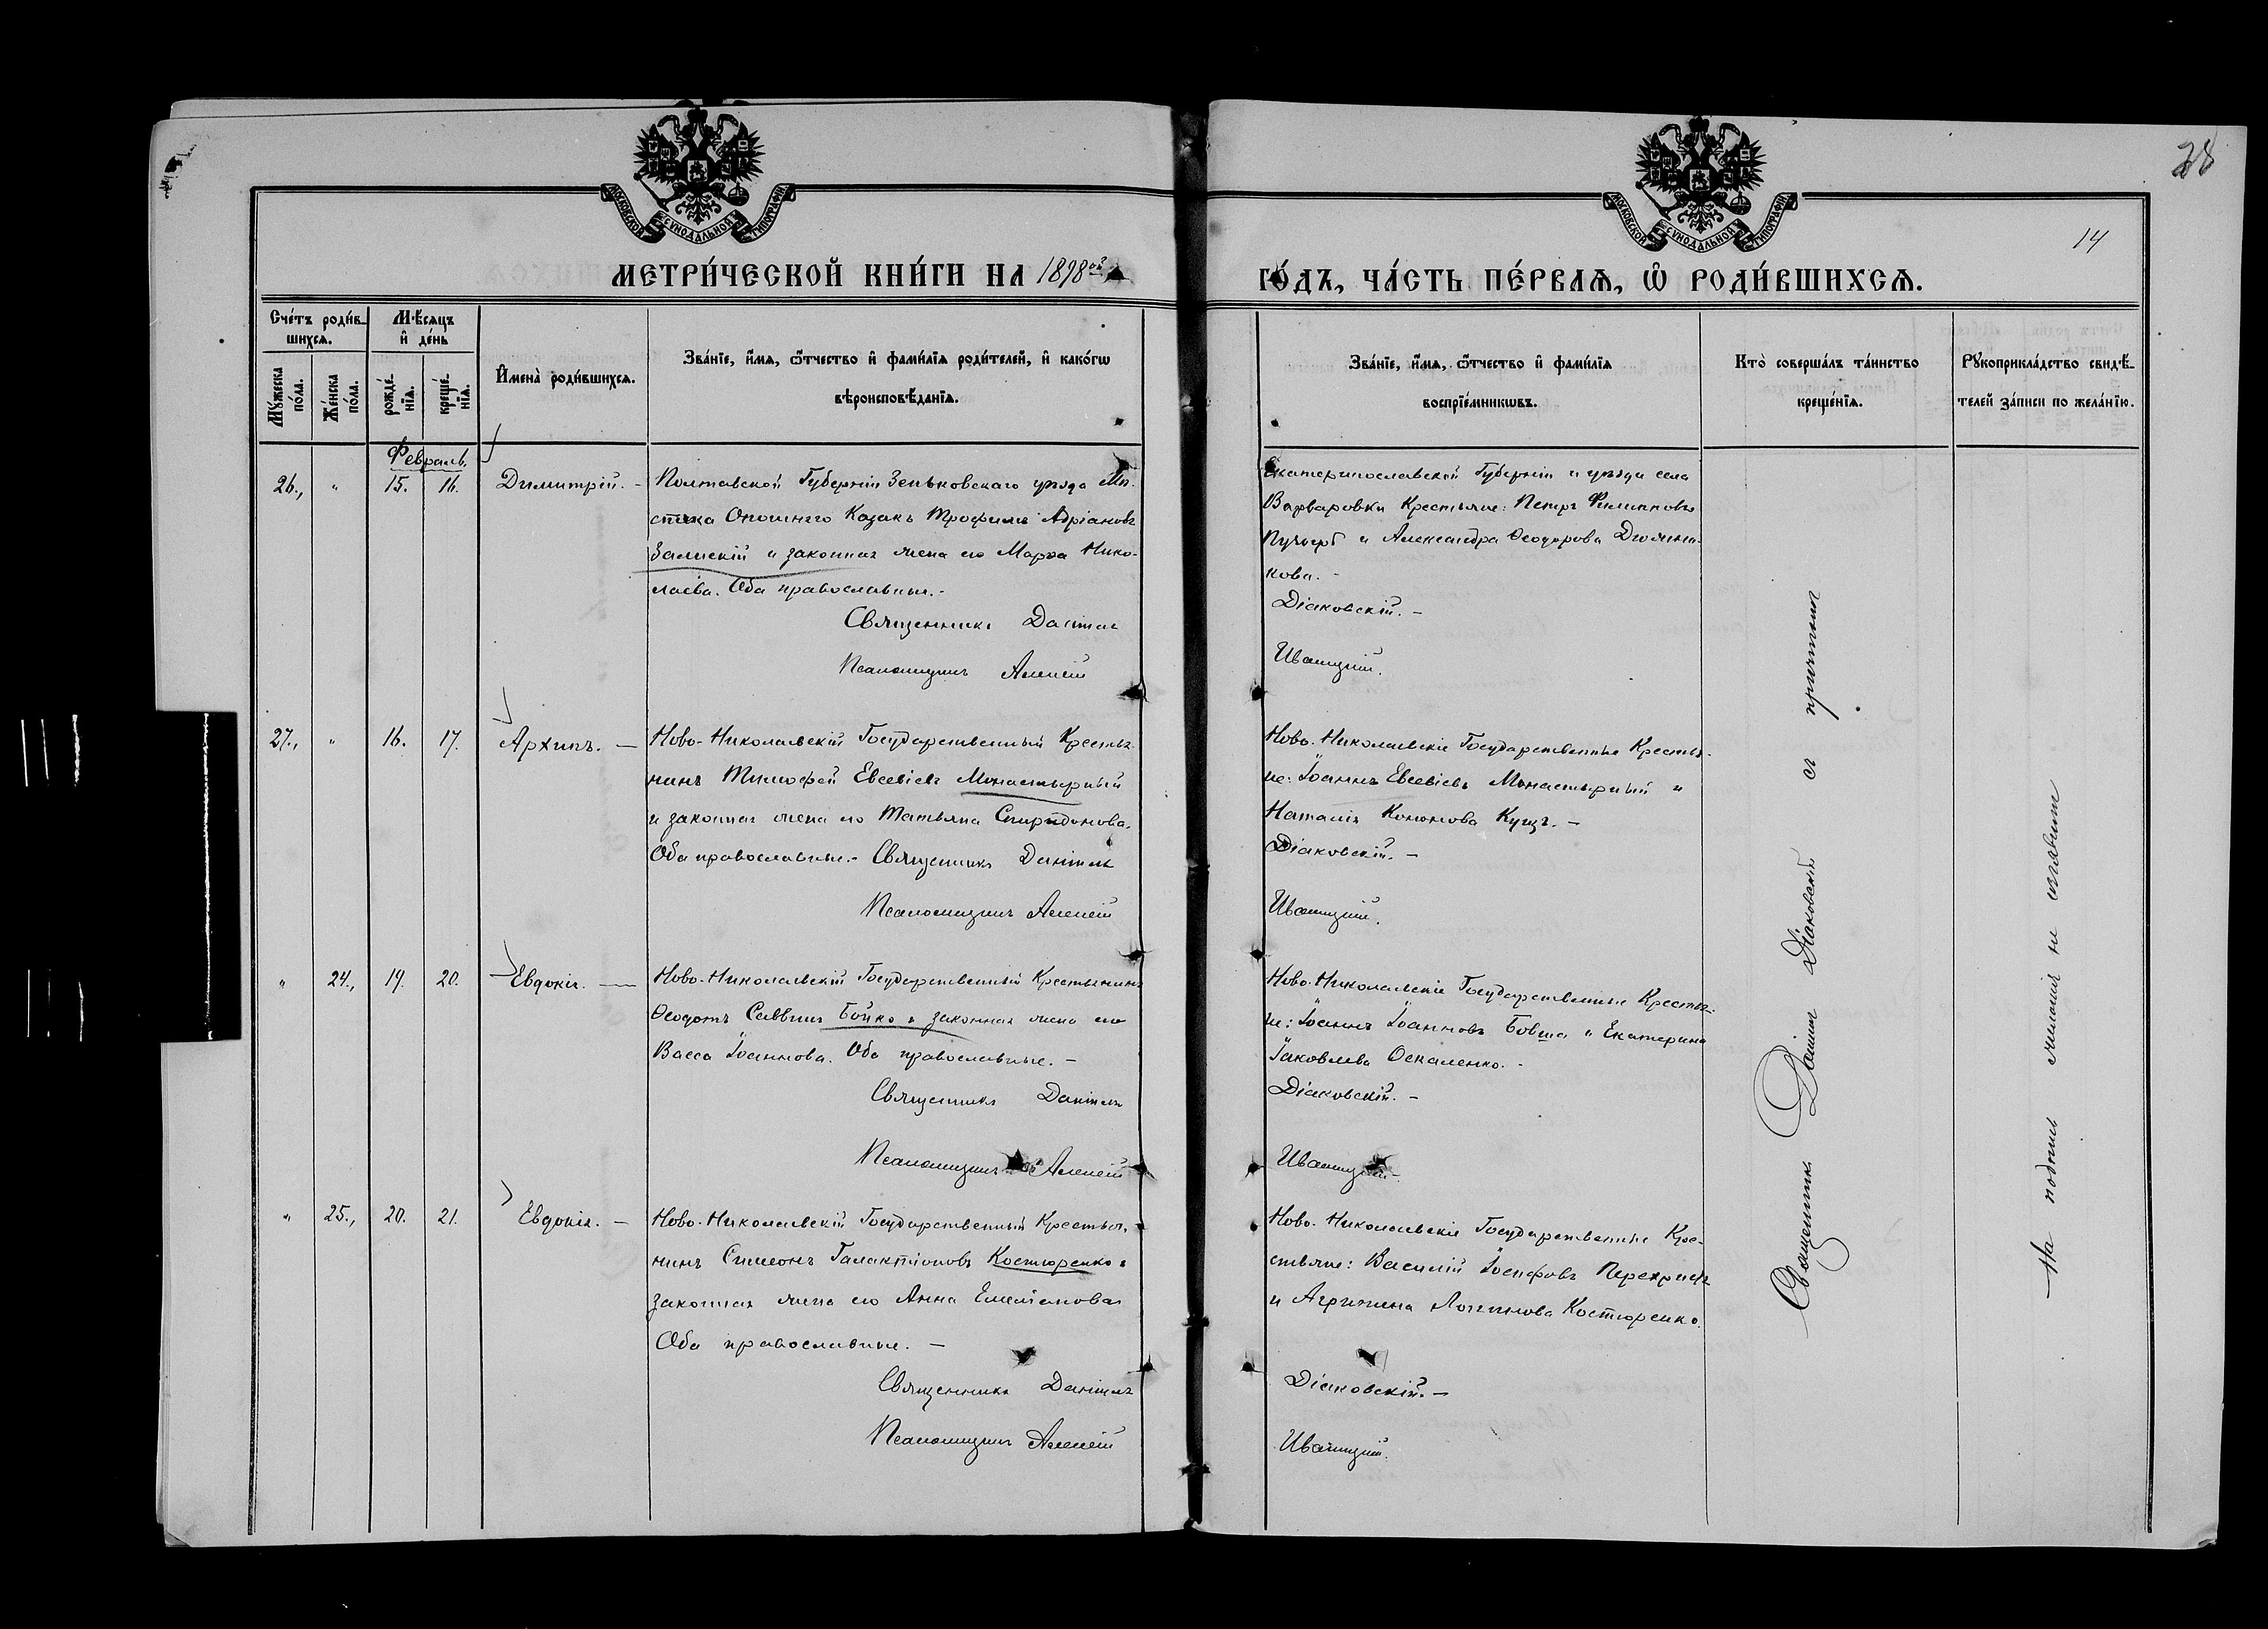 28
14
МОСКОВСКОЙ СѴНОДАЛЬНОЙ ТИПОГРАФІИ
МОСКОВСКОЙ СѴНОДАЛЬНОЙ ТИПОГРАФІИ
МЕТРИ́ЧЕСКОЙ КНИ́ГИ НА 1898 ой
ГО́ДЪ, ЧА́СТЬ ПЕ́РВАѦ, Ѡ҆ РОДИ́ВШИХСѦ.
Сче́тъ роди́в-
шихсѧ.
Мѣ́сѧцъ
и҆ де́нь
Мꙋ́жеска
по́ла.
Же́нска
по́ла.
рожде́-
нїѧ.
креще́-
нїѧ.
И҆мена̀ роди́вшихсѧ.
Зва́нїе, и҆́мѧ, ѻ҆́тчество и҆ фами́лїѧ роди́телей, и҆ како́гѡ
вѣроисповѣ́данїѧ.
Зва́нїе, и҆́мѧ, ѻ҆́тчество и҆ фами́лїѧ
воспрїе́мникѡвъ.
Кто̀ соверша́лъ та́инство
креще́нїѧ.
Рꙋкоприкла́дство свидѣ́-
телей за́писи по жела́нїю.
Февраль.
26., " 15. 16. Димитрій. -
Полтавской Губерніи Зеньковскаго уѣзда Мѣ-
стечка Опошнего Казакъ Трофимъ Адріановъ
Залискій и законная жена его Марѳа Нико-
лаева. Оба православные. -
Священникъ Даніилъ
Псаломщикъ Алексій
Екатеринославской Губерніи и уѣзда села
Варваровки Крестьяне: Петръ Филипповъ
и Александра Ѳеодорова
кова. -
Діаковскій. -
Иваницкій.
27., " 16. 17. Архипъ. -
Ново-Николаевскій Государственный Крестья-
нинъ Тимофей Евсевіевъ Монастырный
и законная жена его Татьяна Спиридонова.
Оба православные. - Священникъ Даніилъ
Псаломщикъ Алексій
Ново-Николаевскіе Государственные Крестья-
не: Іоаннъ Евсевіевъ Монастырный и
Наталія Кононова Куцъ. -
Діаковскій. -
Иваницкій.
" 24., 19. 20. Евдокія. -
Ново-Николаевскій Государственный Крестьянинъ
Ѳеодотъ Саввинъ Бойко и законная жена его
Васса Іоаннова. Оба православные. -
Священникъ Даніилъ
Псаломщикъ Алексій
Ново-Николаевскіе Государственные Крестья-
не: Іоаннъ Іоанновъ Бовша и Екатерина
Іаковлева Оскаленко. -
Діаковскій. -
Иваницкій. -
" 25., 20. 21. Евдокія. -
Ново-Николаевскій Государственный Крестья-
нинъ Симеонъ Галактіоновъ Костюренко и
законная жена его Анна Емеліанова
Оба православные. -
Священникъ Даніилъ
Псаломщикъ Алексій
Ново-Николаевскіе Государственные Кре-
стьяне: Василій Іосифовъ Перехристъ
и Агрипина Логгинова Костюренко.
Діаковскій. -
Иваницкій.
Священникъ Даніилъ Діаковскій съ причтомъ
На подпись желанія не изъявили